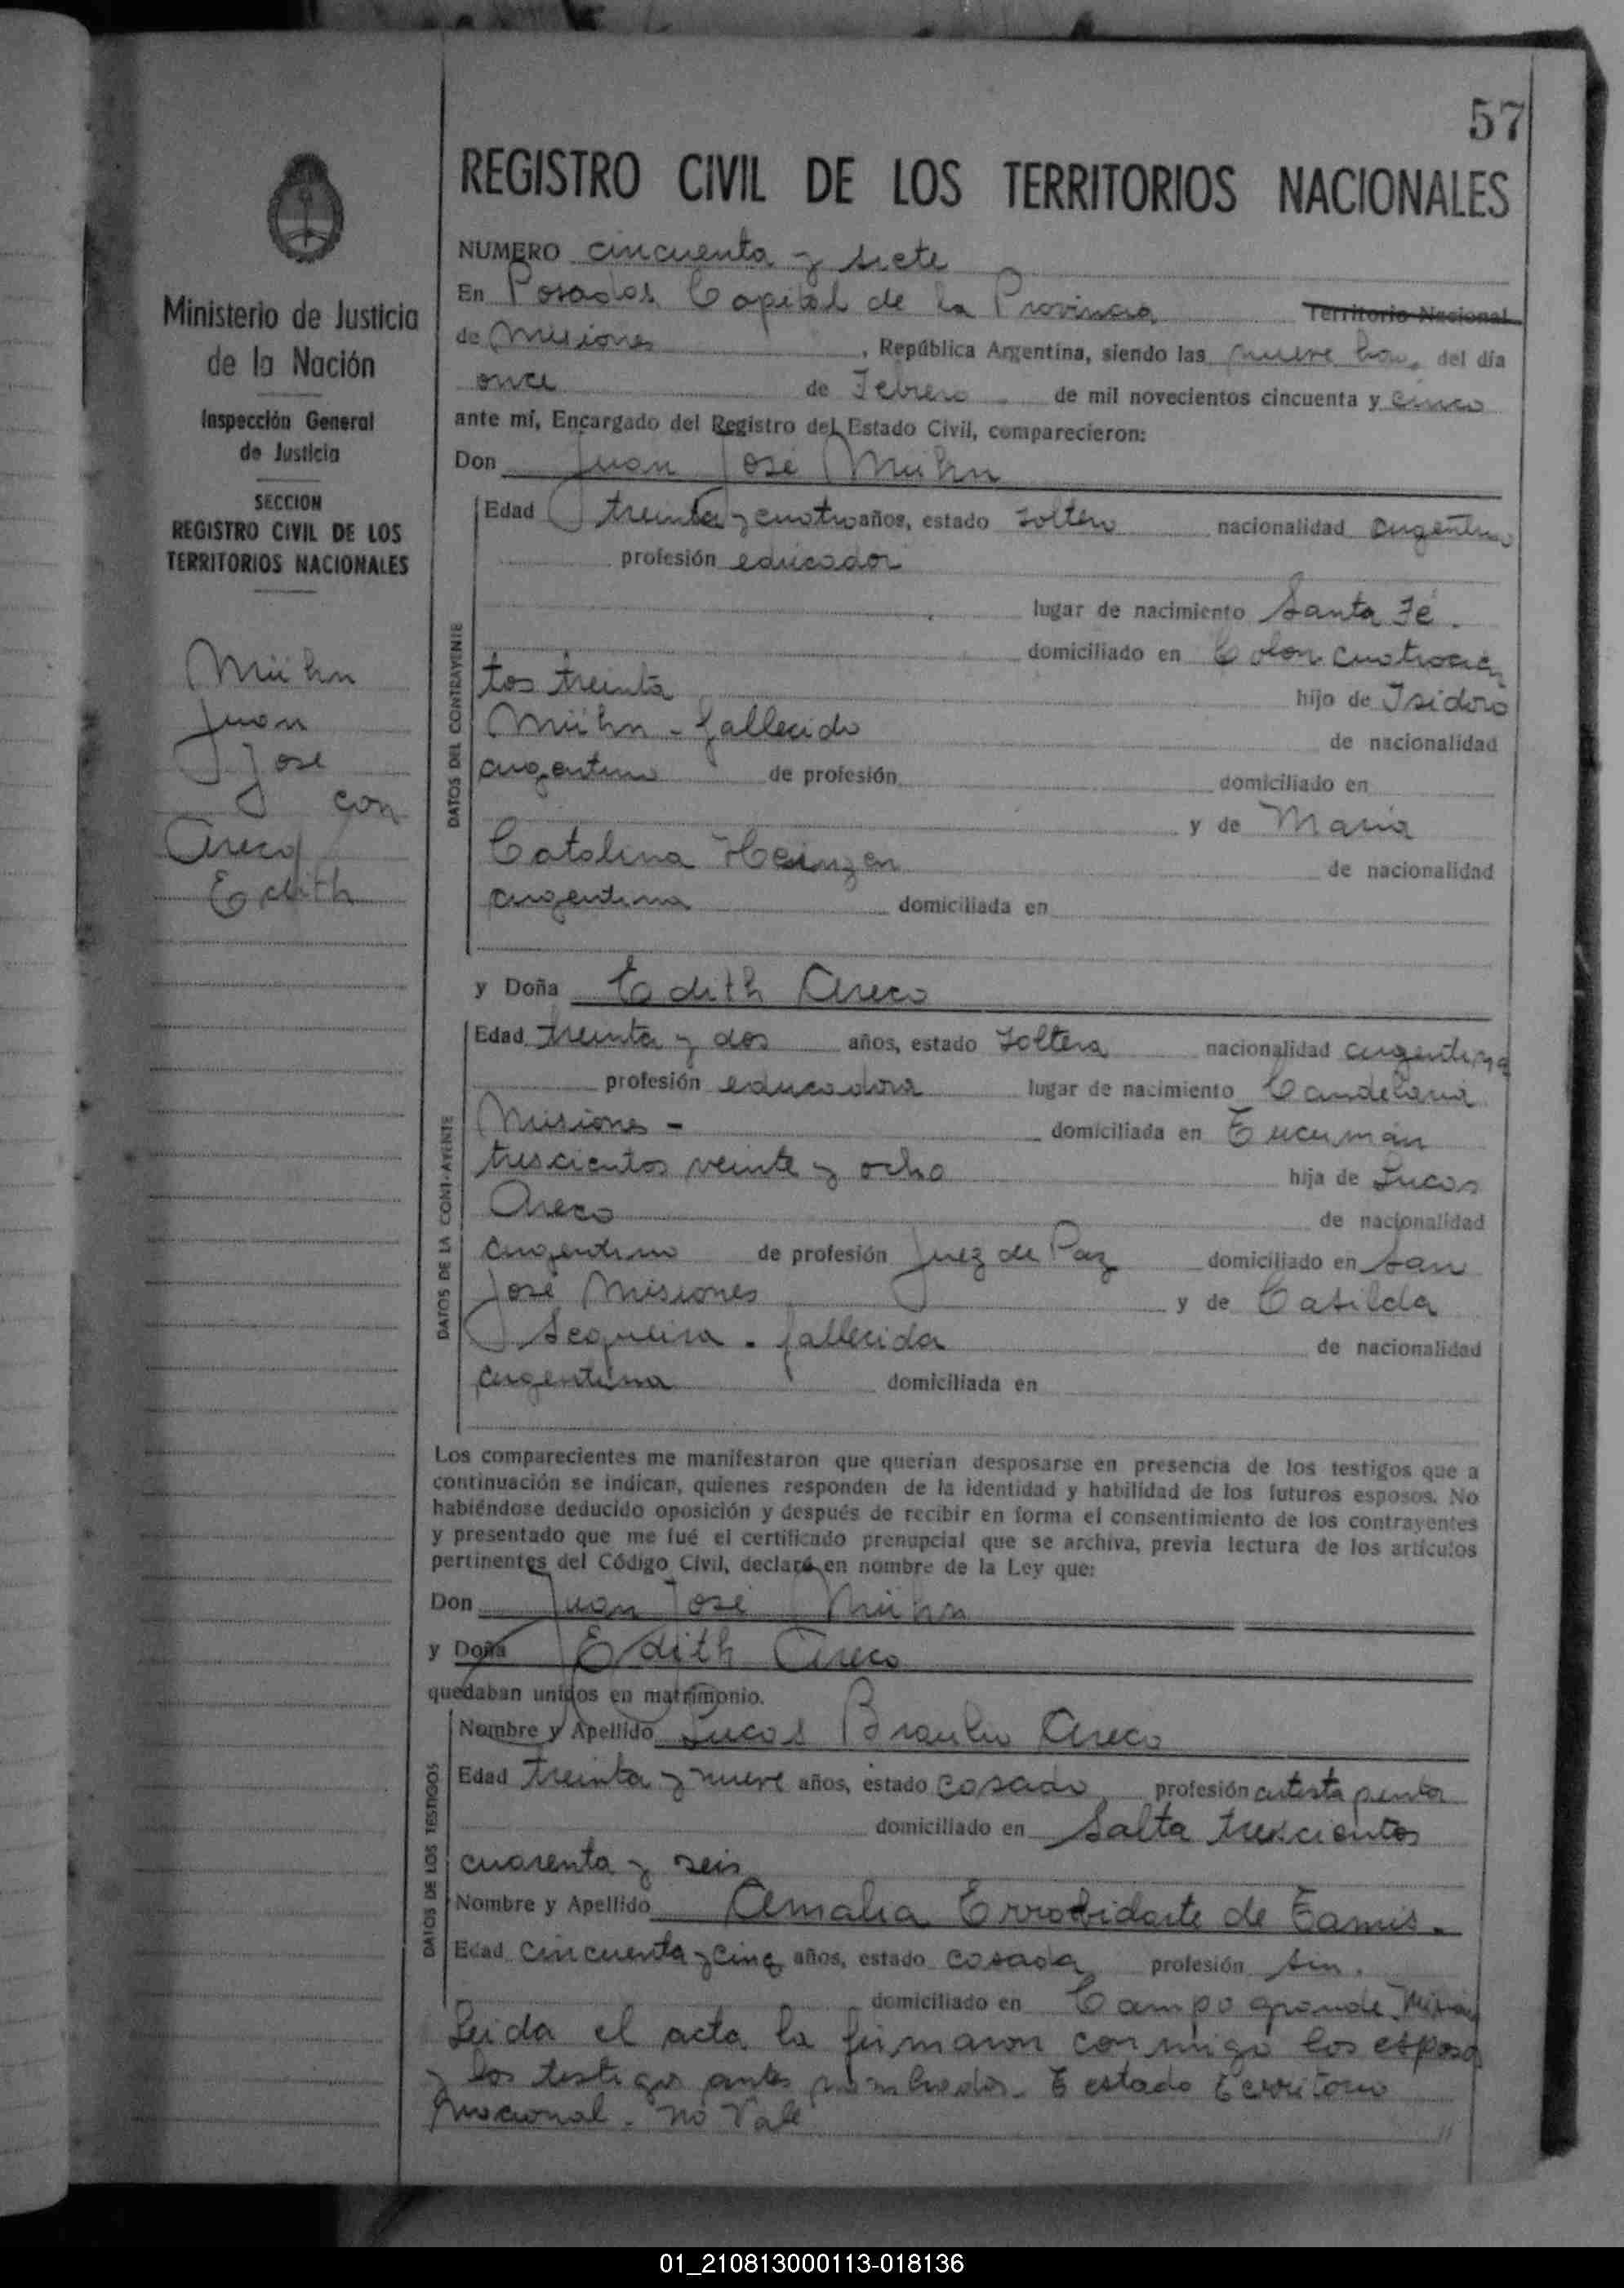 57
REGISTRO CIVIL DE LOS TERRITORIOS NACIONALES
Ministerio de Justicia
de la Nación
Inspección General
de Justicia
SECCION
REGISTRO CIVIL DE LOS
TERRITORIOS NACIONALES
Mühn
Juan
José
con
Areco
Edith
NUMERO cincuenta y siete
En Posadas Capital de la Provincia Territorio Nacional
de Misiones, República Argentina, siendo las nueve hor. del día
once de Febrero de mil novecientos cincuenta y cinco
ante mí, Encargado del Registro del Estado Civil, comparecieron:
Don Juan José Mühn
DATOS DEL CONTRAYENTE
Edad treinta y cuatro años, estado soltero nacionalidad argentino
profesión educador
lugar de nacimiento Santa Fé.
domiciliado en Colon cuatrocien
tos treinta hijo de Isidoro
Mühn - fallecido de nacionalidad
argentino de profesión domiciliado en
y de Maria
Catalina Heinzen de nacionalidad
argentina domiciliada en
y Doña Edith Areco
DATOS DE LA CONTRAYENTE
Edad treinta y dos años, estado soltera nacionalidad argentina
profesión educadora lugar de nacimiento Candelaria
Misiones - domiciliada en Tucumán
trescientos veinte y ocho hija de Lucas
Areco de nacionalidad
argentino de profesión Juez de Paz domiciliado en San
José Misiones y de Casilda
Sequeira - fallecida de nacionalidad
argentina domiciliada en
Los comparecientes me manifestaron que querían desposarse en presencia de los testigos que a
continuación se indican, quienes responden de la identidad y habilidad de los futuros esposos. No
habiéndose deducido oposición y después de recibir en forma el consentimiento de los contrayentes
y presentado que me fué el certificado prenupcial que se archiva, previa lectura de los artículos
pertinentes del Código Civil, declaré en nombre de la Ley que:
Don Juan José Mühn
y Doña Edith Areco
quedaban unidos en matrimonio.
DATOS DE LOS TESTIGOS
Nombre y Apellido Lucas Braulio Areco
Edad treinta y nueve años, estado casado profesión artista pintor
domiciliado en Salta trescientos
cuarenta y seis
Nombre y Apellido Amalia Errobidarte de Tamis.
Edad cincuenta y cinco años, estado casada profesión sin.
domiciliado en Campo grande
Leida el acta la firmaron conmigo los esposos
y los testigos antes nombrados. Testado Territorio
Nacional. No Vale
01_210813000113-018136